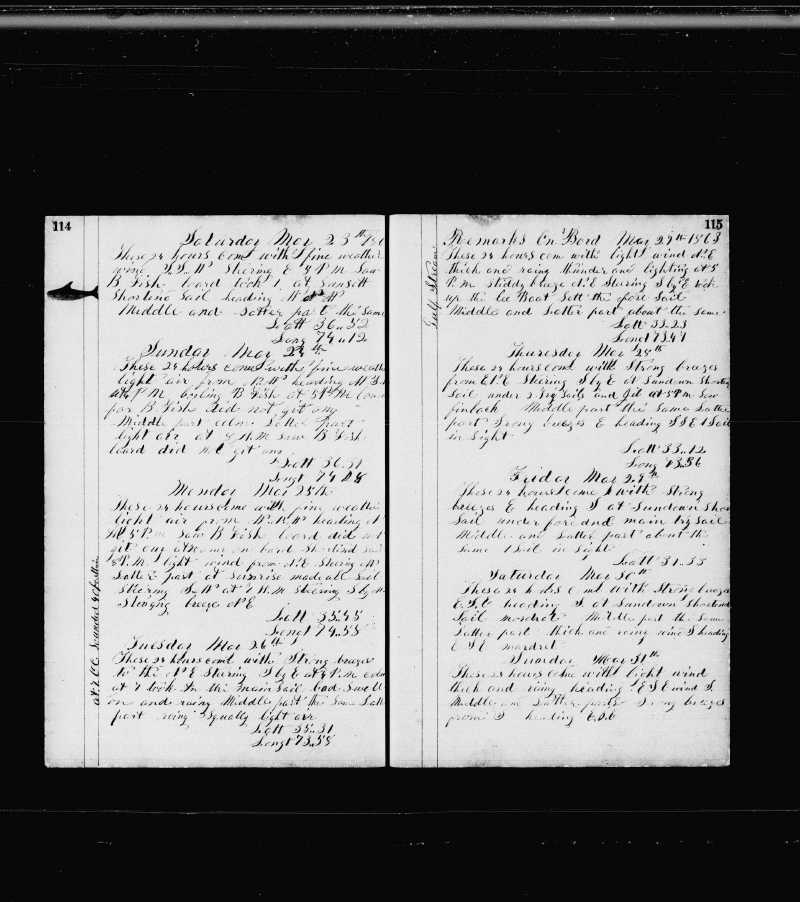 114
Saturday May 23th 186
These 24 hours Com with fine weather
wind S.S.W Stering E 4 P.M Saw
B Fish loard took 1. at Sunsett
Shortind Sail heading W
Middle and Latter part the Same
Latt 36..52
Long 74..12
Sunday May 24th
These 24 hours come with fine weathe
light air from heading
P.M boiling B Fish at 5 P.M loard
for B. Fish did not get any
Middle part calm Latter part
light air at A.M Saw B Fish
loard did not get any
Latt 36.31
Longt 74
Monday May 25th
These 24 hours come with fine weathe
light air from heading
5 P.M Saw B Fish loard did not
get any Came on bard Shortind Sail
8 P.M light wind from N.E Stering
Latter part at Sunrise made all Sail
Stering at 7 A.M Stering S by
Stronging breeze N E
Latt 35..45
Longt 74..55
at 2 O.C. Sounded 40 fathm
Tuesday May 26th
These 24 hours comt with Strong brezes
to the N E Stering S by E at 4 P.M calm
at 7 took In the main Sail bad
on and rainy Middle part the Same Latt
part rainy Squally light air
Latt 35..31
Longt 73..58
115
Gulf Stream
Remarks On Bord May 27th 1863
These 24 hours com with light wind N.E
thick and rainy thunder and lighting at 5
P.M. Stiddy breeze N.E Stering S by E took
up the Lee Boat Sett the fore Sail
Middle and Latter part about the same
Latt 33.23
Longt 73.47
Thuresday May 28th
These 24 hours come with Strong brezes
from E.N.E Stering S by E at Sundown Shorten
Sail under 2 try Sails and Jib at 5 P.M Saw
finback Middle part the Same Latte
part Strong brezes E heading S S E 1 Sail
in Sight
Latt 33..12
Long 73..36
Friday May 29th
These 24 hours come with Strong
brezes E heading S at Sundown Shor
Sail under fore and main try Sail
Middle and Latter part about the
Same 1 Sail in Sight
Latt 31..53
Saturday May 30th
These 24 hours Come with Strong brezes
heading S. at Sundown Shortend
Sail Middle part the Same
Latter part thick and rainy wind S heading
E S E
Sunday May 31th
These 24 hours come with light wind
thick and rainy heading E S E wind S.
Middle and Latter parts Strong brezes
from S heading